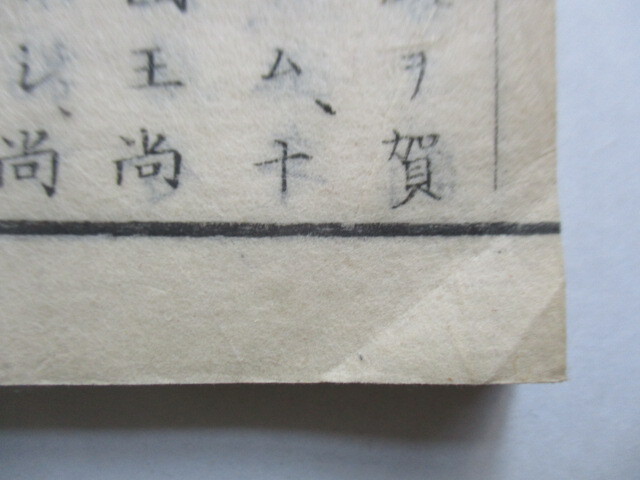 ヲ賀
ム、十
王尚
シ、尚